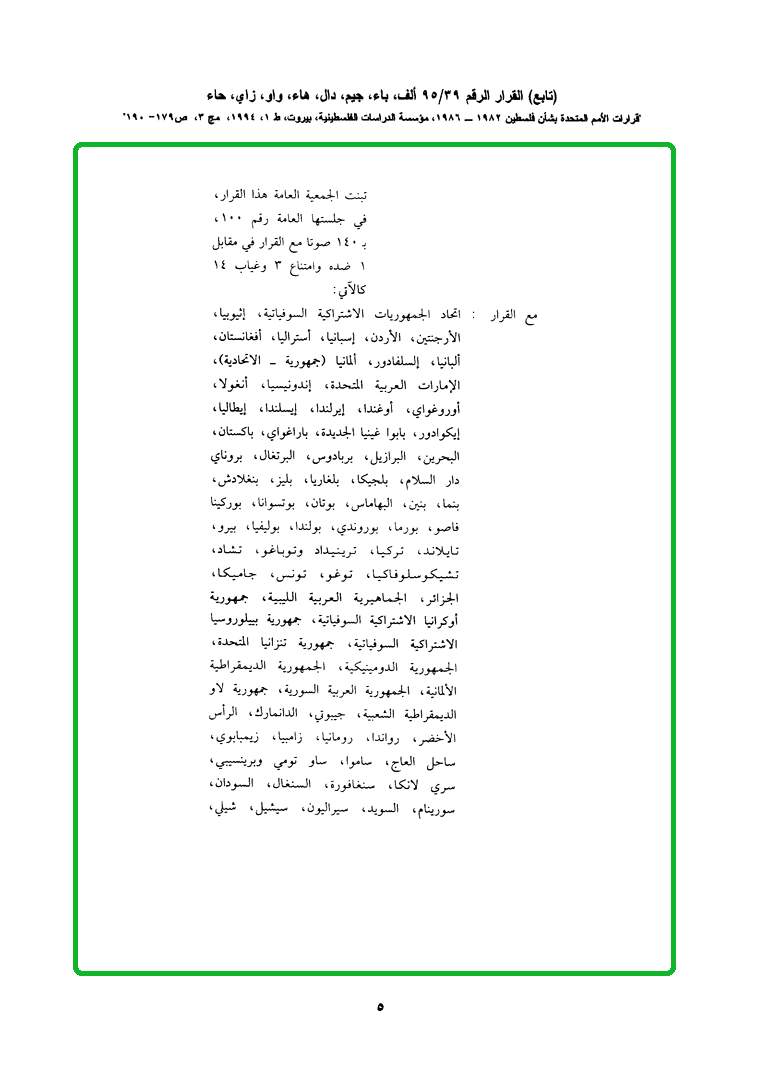 (تابع) القرار الرقم ٩٥/٣٩ ألف، باء، جيم، دال، هاء، واو، زاي، حاء
"قرارات الأمم المتحدة بشأن فلسطين ١٩٨٢ ــ ١٩٨٦، مؤسسة الدراسات الفلسطينية، بيروت، ط ١، ١٩٩٤، مج ٣، ص١٧٩- ١٩٠"
تبنت الجمعية العامة هذا القرار،
في جلستها العامة رقم ١٠٠،
بـ ١٤٠ صوتا مع القرار في مقابل
١ ضده وامتناع ٣ وغياب ١٤
كالآتي:
مع القرار : اتحاد الجمهوريات الاشتراكية السوفياتية، إثيوبيا،
الأرجنتين، الأردن، إسبانيا، أستراليا، أفغانستان،
ألبانيا، إلسلفادور، ألمانيا (جمهورية ـ الاتحادية)،
الإمارات العربية المتحدة، إندونيسيا، أنغولا،
أوروغواي، أوغندا، إيرلندا، إيسلندا، إيطاليا،
إيكوادور، بابوا غينيا الجديدة، باراغواي، باكستان،
البحرين، البرازيل، بربادوس، البرتغال، بروناي
دار السلام، بلجيكا، بلغاريا، بليز، بنغلادش،
بنما، بنين، البهاماس، بوتان، بوتسوانا، بوركينا
فاصو، بورما، بوروندي، بولندا، بوليفيا، بيرو،
تايلاند، تركيا، ترينيداد وتوباغو، تشاد،
تشيكوسلوفاكيا، توغو، تونس، جاميكا،
الجزائر، الجماهيرية العربية الليبية، جمهورية
أوكرانيا الاشتراكية السوفياتية، جمهورية بييلوروسيا
الاشتراكية السوفياتية، جمهورية تنزانيا المتحدة،
الجمهورية الدومينيكية، الجمهورية الديمقراطية
الألمانية، الجمهورية العربية السورية، جمهورية لاو
الديمقراطية الشعبية، جيبوتي، الدانمارك، الرأس
الأخضر، رواندا، رومانيا، زامبيا، زيمبابوي،
ساحل العاج، ساموا، ساو تومي وبرينسيبي،
سري لانكا، سنغافورة، السنغال، السودان،
سورينام، السويد، سيراليون، سيشيل، شيلي،
٥